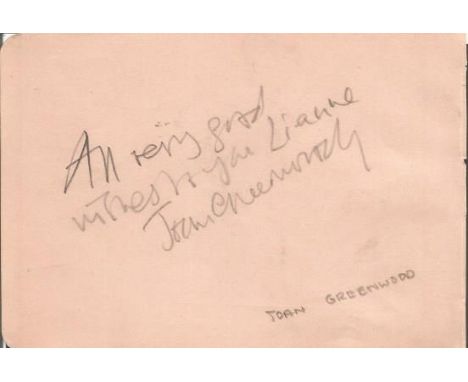 All very good
wishes to you Lianne
Joan Greenwood
JOAN GREENWOOD